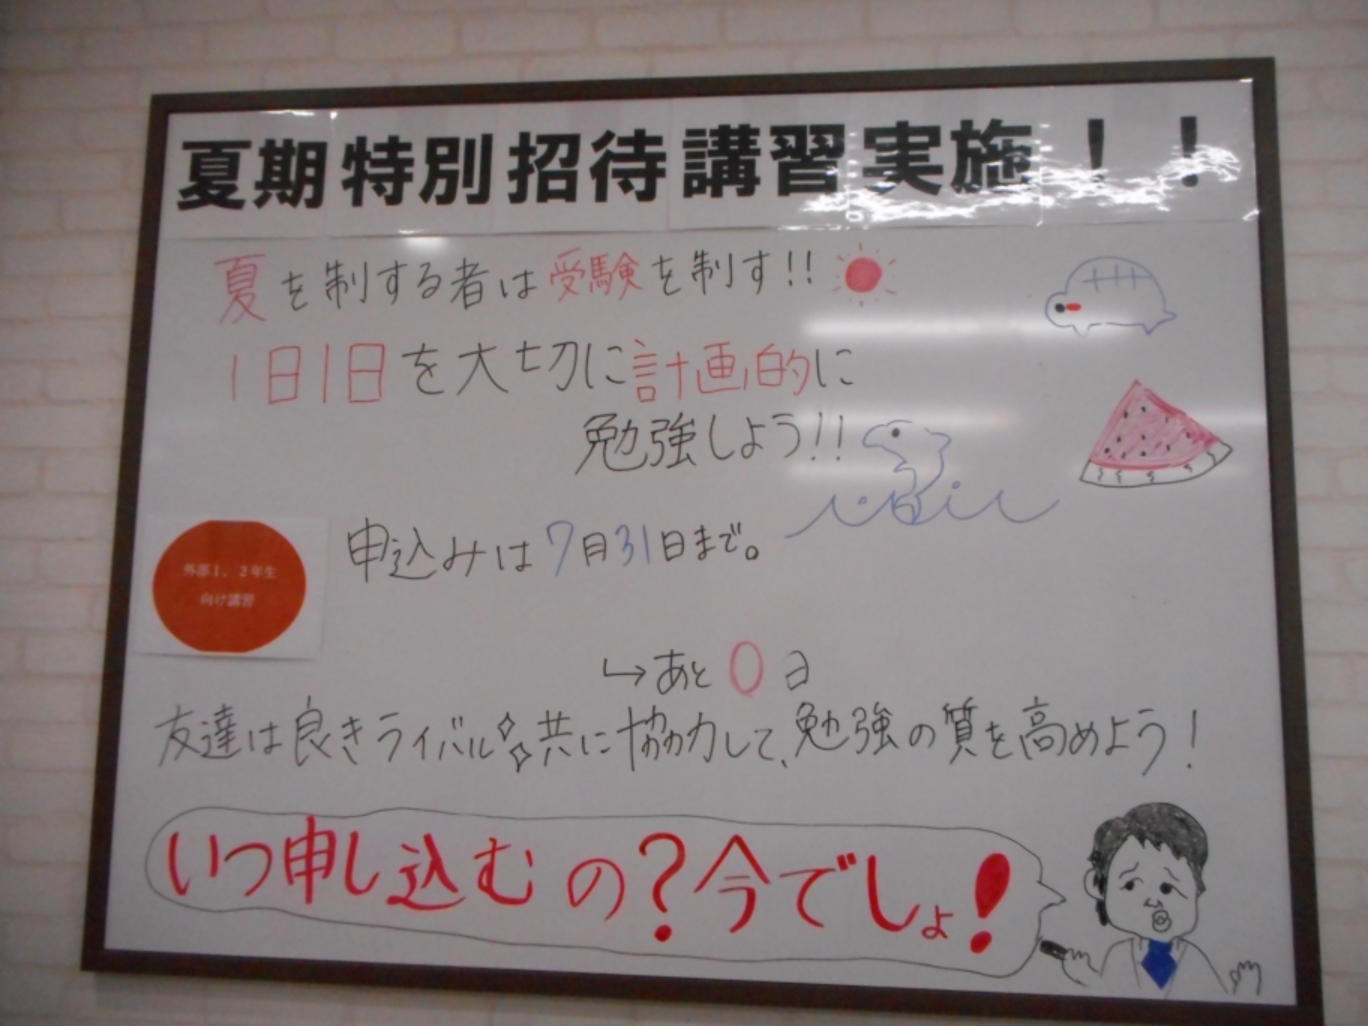 夏期特別招待講習実施！！
夏を制する者は受験を制す!!
1日1日を大切に計画的に
勉強しよう!!
申込みは7月31日まで。
外部1、2年生
向け講習
↳あと0日
友達は良きライバル 共に協力して、勉強の質を高めよう！
いつ申し込むの？今でしょ！